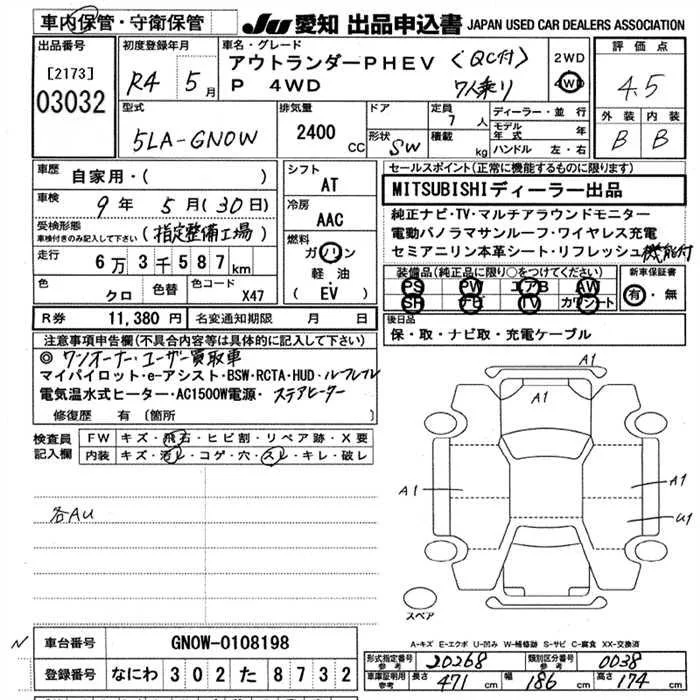 車内保管・守衛保管
JU 愛知 出品申込書 JAPAN USED CAR DEALERS ASSOCIATION
出品番号
[2173]
03032
初度登録年月
R4 5月
車名・グレード
アウトランダーPHEV (QC付)
P 4WD 7人乗り
2WD
4WD
評価点
4.5
外装 内装
B B
型式
5LA-GN0W
排気量
2400 CC
ドア
形状 SW
定員 7 人
積載 kg
ディーラー・並行
モデル年式 年
ハンドル 左・右
車歴
自家用・( )
車検
9年 5月(30日)
受検形態
車検付きのみ記入して下さい
(指定整備工場)
走行
6万3千587km
色
クロ
色替
色コード
X47
シフト
AT
冷房
AAC
燃料
ガソリン
軽油
(EV)
セールスポイント(正常に機能するものに限ります)
MITSUBISHIディーラー出品
純正ナビ・TV・マルチアラウンドモニター
電動パノラマサンルーフ・ワイヤレス充電
セミアニリン本革シート・リフレッシュ機能付
装備品(純正品に限り○をつけてください)
PS PW エアB AW
SR ナビ TV カワシート
新車保証書
有・無
R券 11,380円 名変通知期限 月 日
後日品
保・取・ナビ取・充電ケーブル
注意事項申告欄(不具合内容等は具体的に記入して下さい)
◎ワンオーナー・ユーザー買取車
マイパイロット・e-アシスト・BSW・RCTA・HUD・ルーフレル
電気温水式ヒーター・AC1500W電源・ステアヒーター
修復歴 有 (箇所
検査員記入欄
FW キズ・飛石・ヒビ割・リペア跡・X要
内装 キズ・汚レ・コゲ・穴・スレ・キレ・破レ
各AU
A1
A1
A1
A1
U1
スペア
A-キズ E-エクボ U-凹み W-補修跡 S-サビ C-腐食 XX-交換済
N
車台番号 GN0W-0108198
登録番号 なにわ 302 た 8732
形式指定番号 参考 20268
類別区分番号 参考 0038
車庫証明用 参考 長さ 471 cm 幅 186 cm 高さ 174 cm